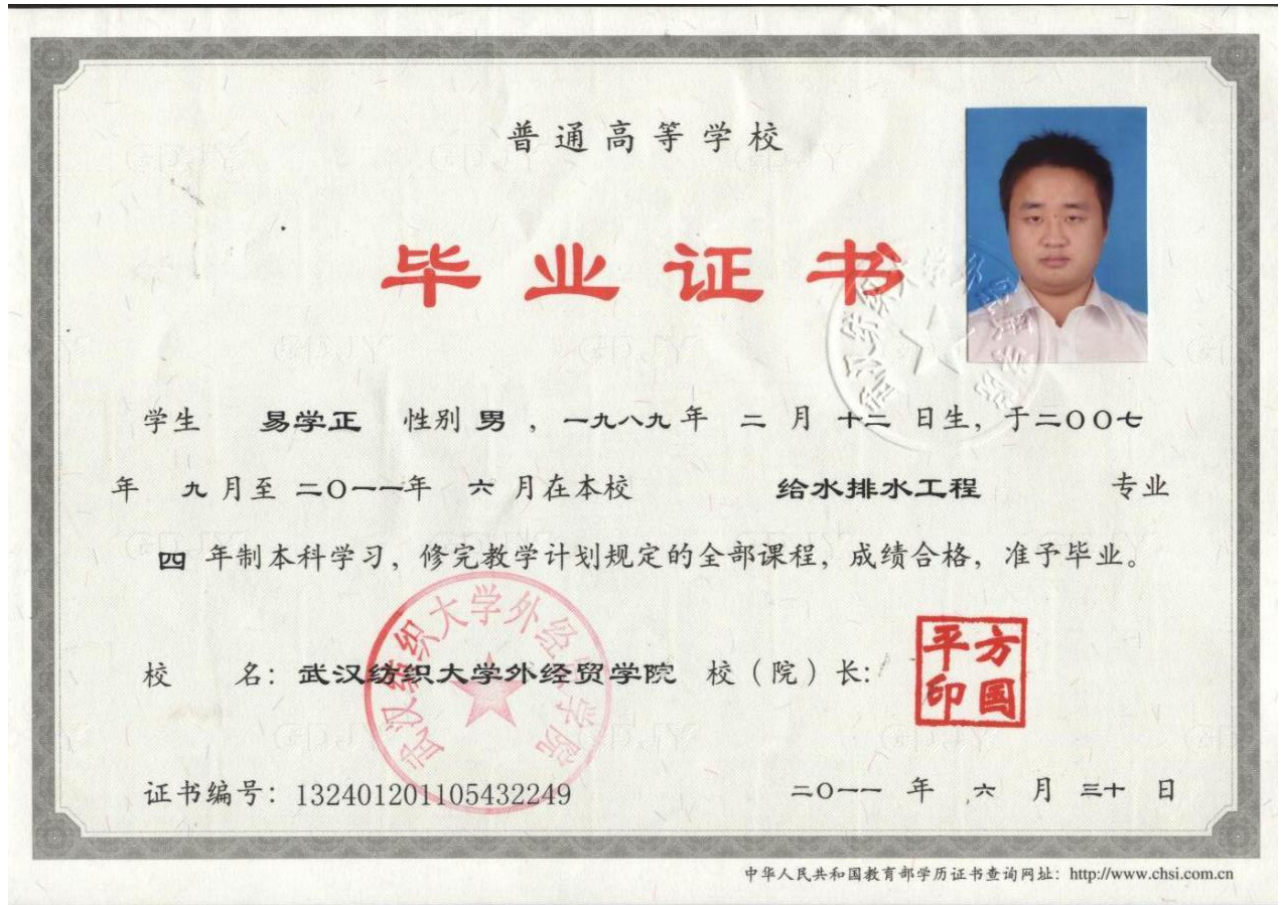 普通高等学校
毕业证书
学生 易学正 性别 男 ，一九八九 年 二 月 十二 日生，于二〇〇七
年 九 月至 二〇一一年 六 月在本校 给水排水工程 专业
四 年制本科学习，修完教学计划规定的全部课程，成绩合格，准予毕业。
武汉纺织大学外经贸学院
校 名：武汉纺织大学外经贸学院 校（院）长：
方国平印
证书编号：132401201105432249 二〇一一 年 六 月 三十 日
中华人民共和国教育部学历证书查询网址：http://www.chsi.com.cn